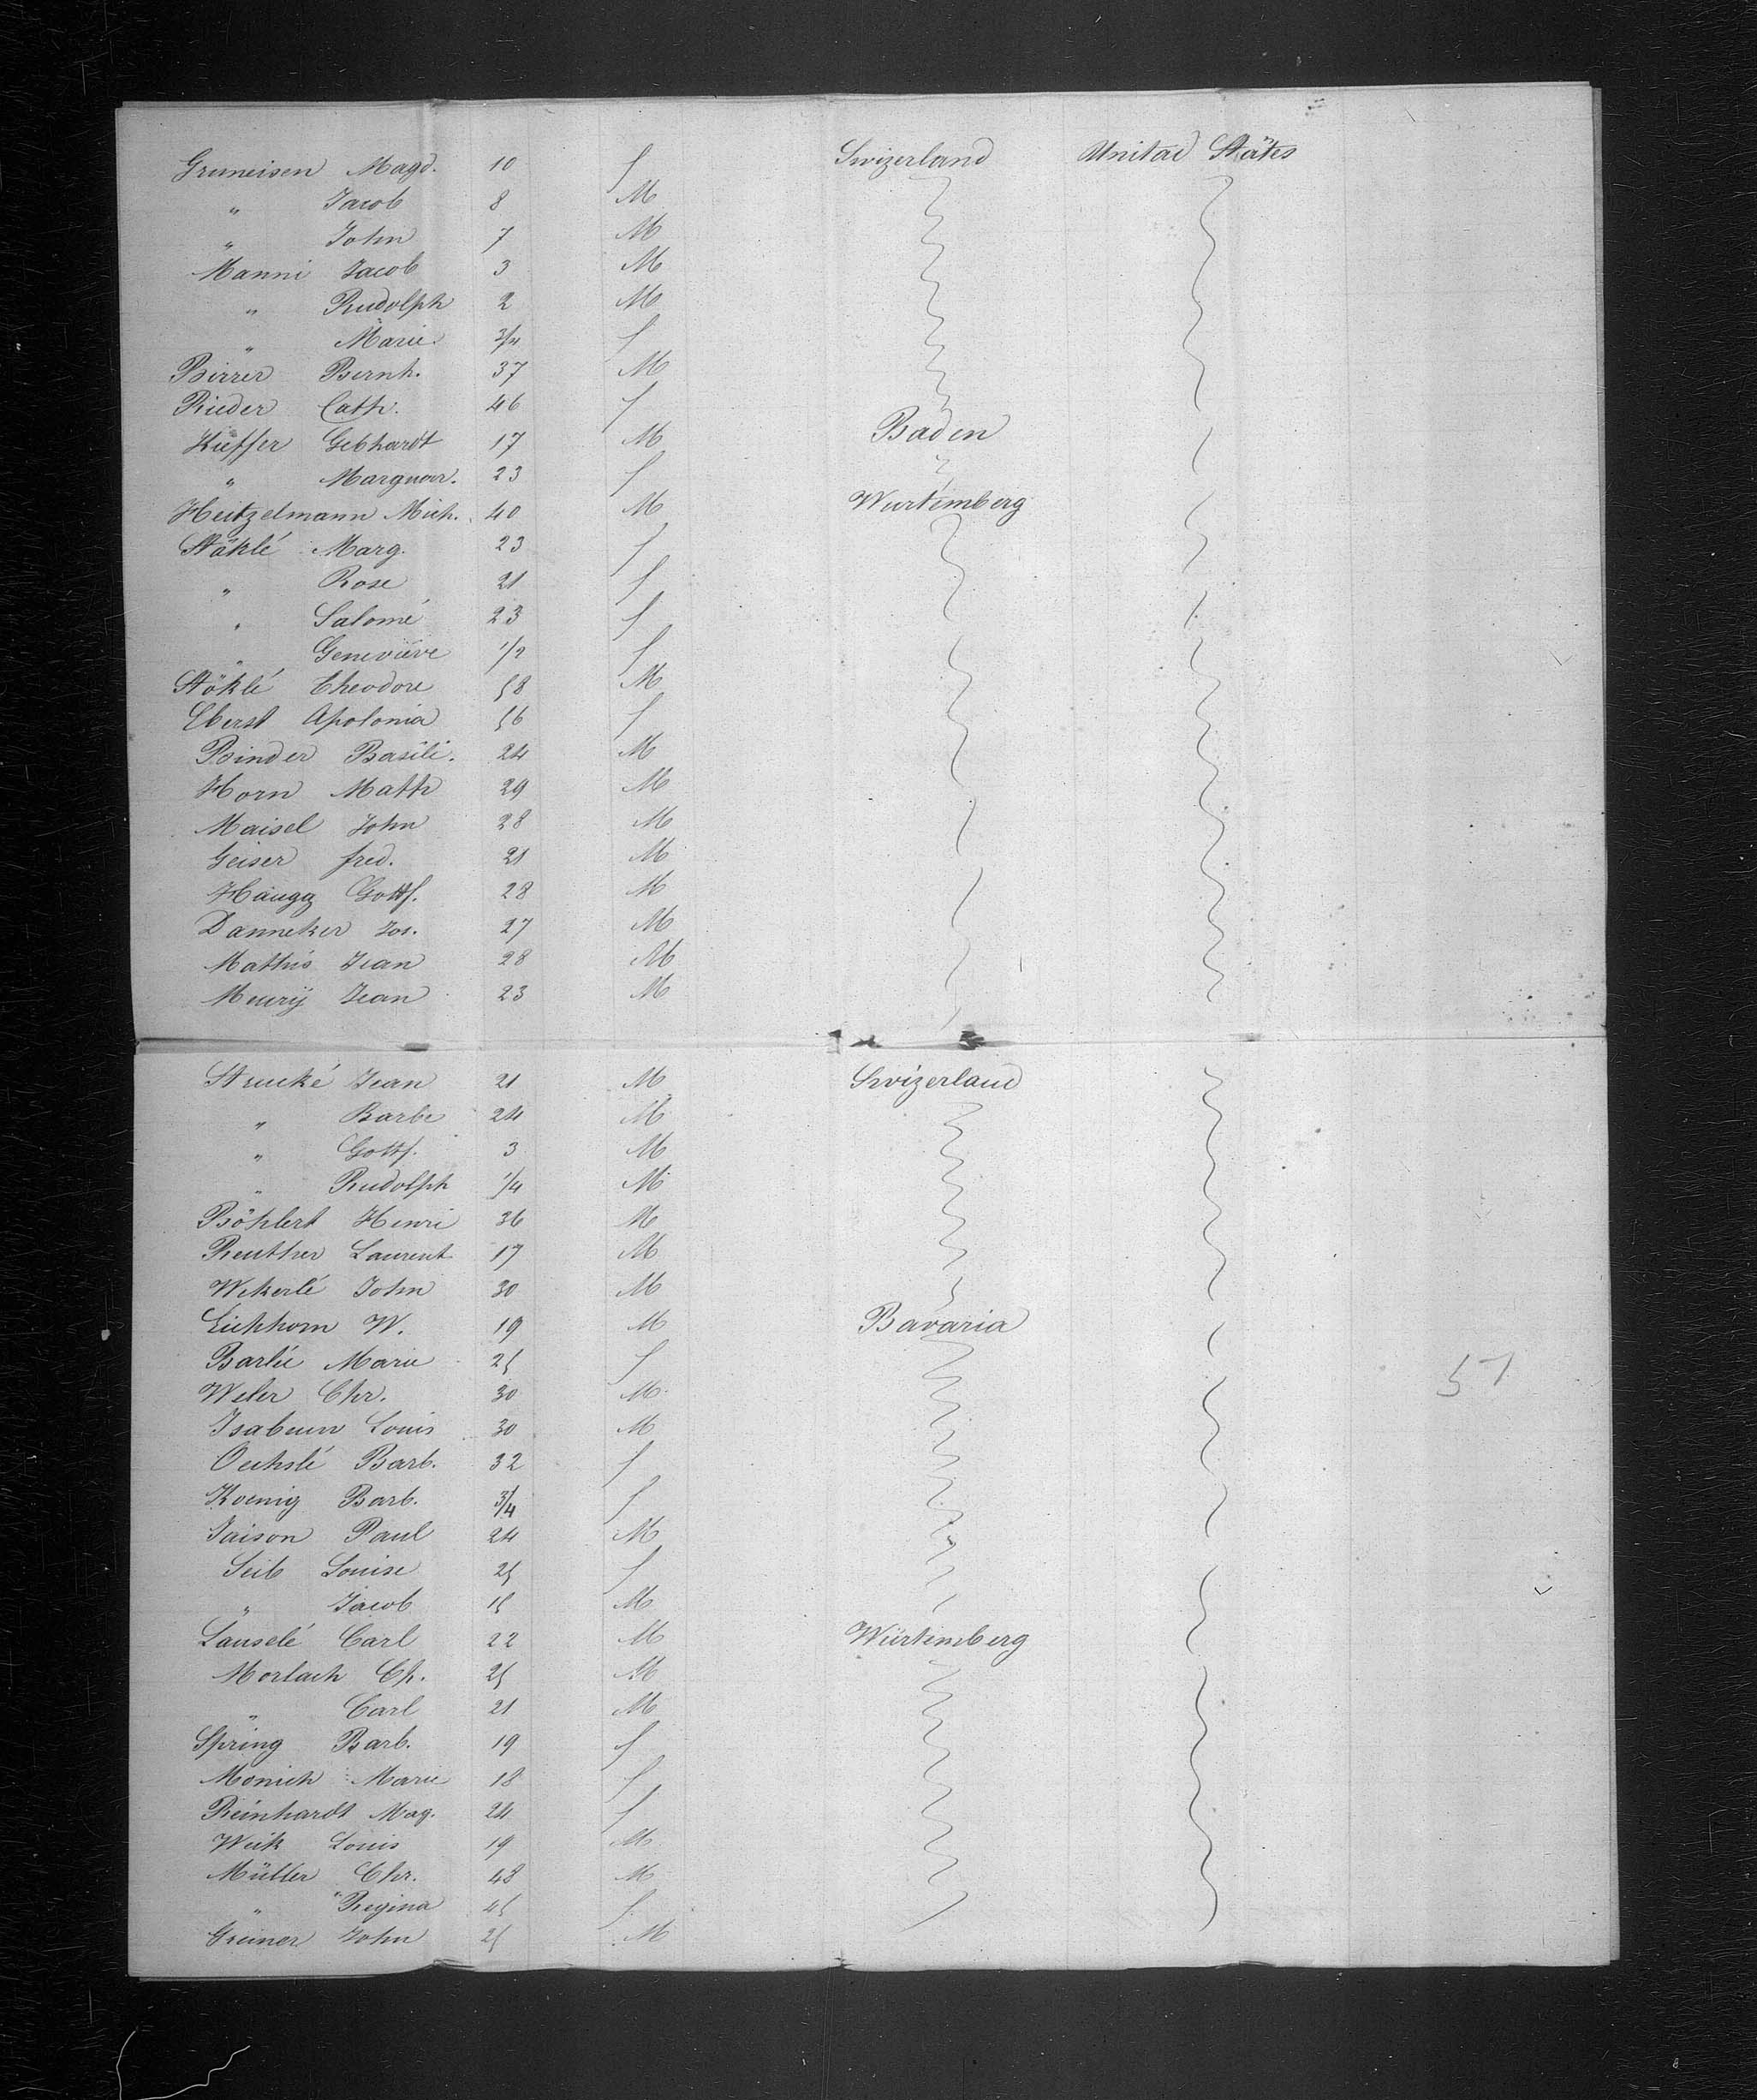 Gruneisen Magd. 10 f Swizerland Unitad States
" Jacob 8 M
" John 7 M
Manni Jacob 3 M
" Rudolph 2 M
" Marie 3/4 f
Birrer Bernh. 37 M
Rieder Cath. 46 f
Kieffer Gebhardt 17 M Baden
" Marguer. 23 f
Heitzelmann Mich. 40 M Wurtemberg
Stöklé Marg. 23 f
" Rose 21 f
" Salomé 23 f
" Geneviève 1/2 f
Stöklé Theodore 58 M
Eberst Apolonia 56 f
Binder Basili. 24 M
Horn Math 29 M
Maisel John 28 M
Geiser fred. 21 M
Haugg Gottf. 28 M
Danneker Jos. 27 M
Mathis Jean 28 M
Meurÿ Jean 23 M
Strucké Jean 21 M Swizerland
" Barbe 24 M
" Gottf. 3 M
" Rudolph 1/4 M
Böhlert Henri 36 M
Reuther Laurent 17 M
Wekerlé John 30 M
Eichhorn W. 19 M Bavaria
Barlié Marie 25 f
Weler Chr. 30 M
57
Louis 30 M
Oechslé Barb. 32 f
Koenig Barb. 3/4 f
Jaison Paul 24 M
Seib Louise 25 f
" Jacob 15 M
Lauselé Carl 22 M Würtemberg
Morlach Ch. 25 M
" Carl 21 M
Spring Barb. 19 f
Monich Marie 18 f
Reinhardt Mag. 24 f
Weik Louis 19 M
Müller Chr. 48 M
" Regina 45 f
Greiner John 25 M